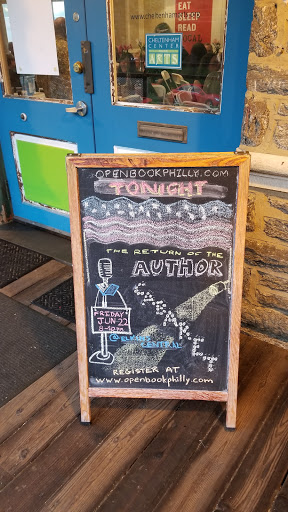 www.cheltenham
EAT
SLEEP
READ
CHELTENHAM
CENTER
ARTS
OPENBOOKPHILLY.COM
TONIGHT
THE RETURN OF THE
AUTHOR
CABARET
FRIDAY
JUN 22
CENTRAL
REGISTER AT
www.openbookphilly.com